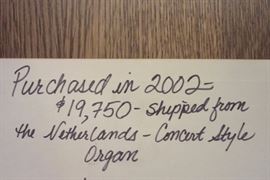 Purchased in 2002-
$19,750- shipped from
the Netherlands - Concert Style
Organ